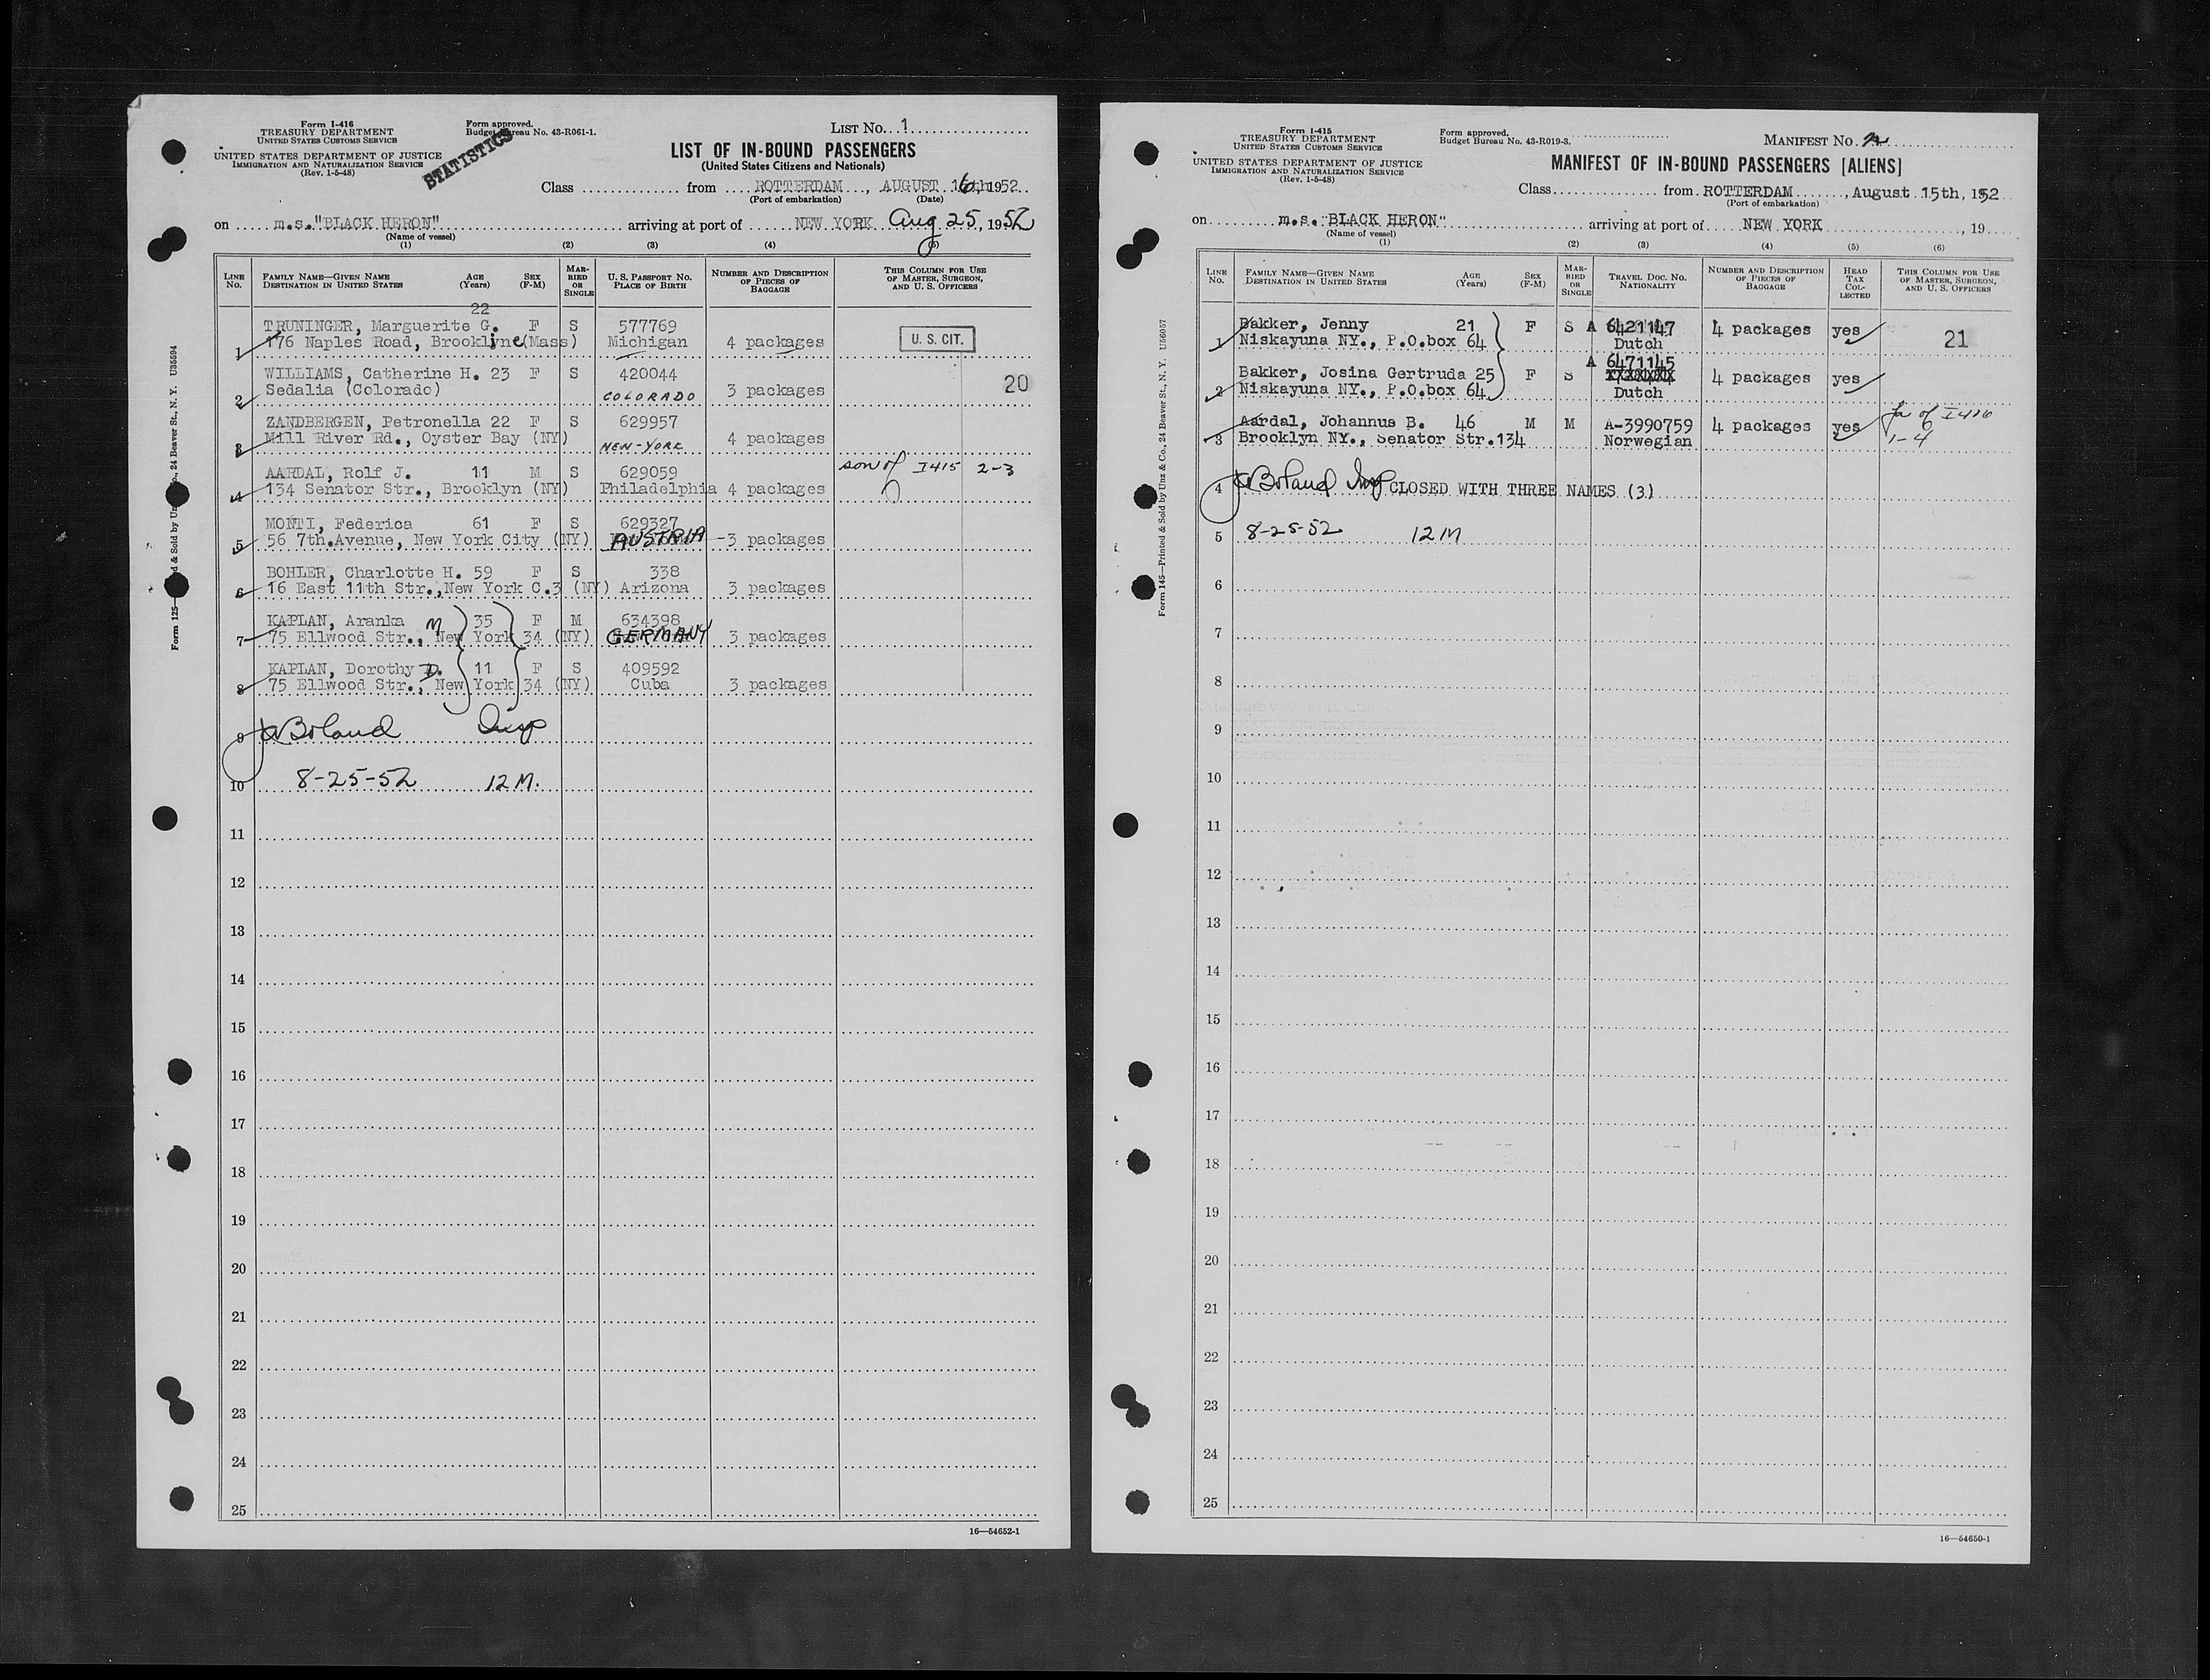 Form I-416
TREASURY DEPARTMENT
UNITED STATES CUSTOMS SERVICE
UNITED STATES DEPARTMENT OF JUSTICE
IMMIGRATION AND NATURALIZATION SERVICE
(Rev. 1-5-48)
Form approved.
Budget Bureau No. 43-R061-1.
STATISTICS
LIST NO. 1
LIST OF IN-BOUND PASSENGERS
(United States Citizens and Nationals)
Class from ROTTERDAM, AUGUST 16th, 1952
(Port of embarkation) (Date)
on m.s."BLACK HERON" arriving at port of NEW YORK Aug 25, 1952
(Name of vessel)
(1) (2) (3) (4) (5)
LINE No. FAMILY NAME—GIVEN NAME DESTINATION IN UNITED STATES AGE (Years) SEX (F-M) MARRIED OR SINGLE U. S. PASSPORT NO. PLACE OF BIRTH NUMBER AND DESCRIPTION OF PIECES OF BAGGAGE THIS COLUMN FOR USE OF MASTER, SURGEON, AND U. S. OFFICERS
22
TRUNINGER, Marguerite G. F S 577769
1 176 Naples Road, Brookline(Mass) Michigan 4 packages U. S. CIT.
WILLIAMS, Catherine H. 23 F S 420044 20
2 Sedalia (Colorado) COLORADO 3 packages
ZANDBERGEN, Petronella 22 F S 629957
3 Mill River Rd., Oyster Bay (NY) NEW-YORK 4 packages
AARDAL, Rolf J. 11 M S 629059 son of I415 2-3
4 134 Senator Str., Brooklyn (NY) Philadelphia 4 packages
MONTI, Federica 61 F S 629327
5 56 7th.Avenue, New York City (NY) AUSTRIA 3 packages
BOHLER, Charlotte H. 59 F S 338
6 16 East 11th Str.,New York C.3 (NY) Arizona 3 packages
KAPLAN, Aranka M 35 F M 634398
7 75 Ellwood Str., New York 34 (NY) GERMANY 3 packages
KAPLAN, Dorothy D. 11 F S 409592
8 75 Ellwood Str., New York 34 (NY) Cuba 3 packages
9 Boland Insp
10 8-25-52 12 M.
11
12
13
14
15
16
17
18
19
20
21
22
23
24
25
16—54652-1
24 Beaver St., N. Y. U35594
Form 125
Form I-415
TREASURY DEPARTMENT
UNITED STATES CUSTOMS SERVICE
UNITED STATES DEPARTMENT OF JUSTICE
IMMIGRATION AND NATURALIZATION SERVICE
(Rev. 1-5-48)
Form approved.
Budget Bureau No. 43-R019-3.
MANIFEST NO. 2
MANIFEST OF IN-BOUND PASSENGERS [ALIENS]
Class from ROTTERDAM, August 15th, 1952
(Port of embarkation)
on m.s."BLACK HERON" arriving at port of NEW YORK, 19
(Name of vessel)
(1) (2) (3) (4) (5) (6)
LINE No. FAMILY NAME—GIVEN NAME DESTINATION IN UNITED STATES AGE (Years) SEX (F-M) MARRIED OR SINGLE TRAVEL DOC. NO. NATIONALITY NUMBER AND DESCRIPTION OF PIECES OF BAGGAGE HEAD TAX COLLECTED THIS COLUMN FOR USE OF MASTER, SURGEON, AND U. S. OFFICERS
Bakker, Jenny 21 F S A 6421147 4 packages yes 21
1 Niskayuna NY., P.O.box 64 Dutch
A 6471145
Bakker, Josina Gertruda 25 F S XXXXXXX 4 packages yes
2 Niskayuna NY., P.O.box 64 Dutch
Aardal, Johannus B. 46 M M A-3990759 4 packages yes fa of I416
3 Brooklyn NY., Senator Str.134 Norwegian 1-4
4 Boland Insp CLOSED WITH THREE NAMES (3)
5 8-25-52 12 M
6
7
8
9
10
11
12
13
14
15
16
17
18
19
20
21
22
23
24
25
16—54650-1
Form 145—Printed & Sold by Unz & Co., 24 Beaver St., N. Y. U56057